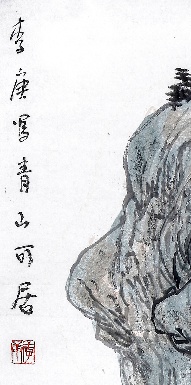 李庚写青山可居